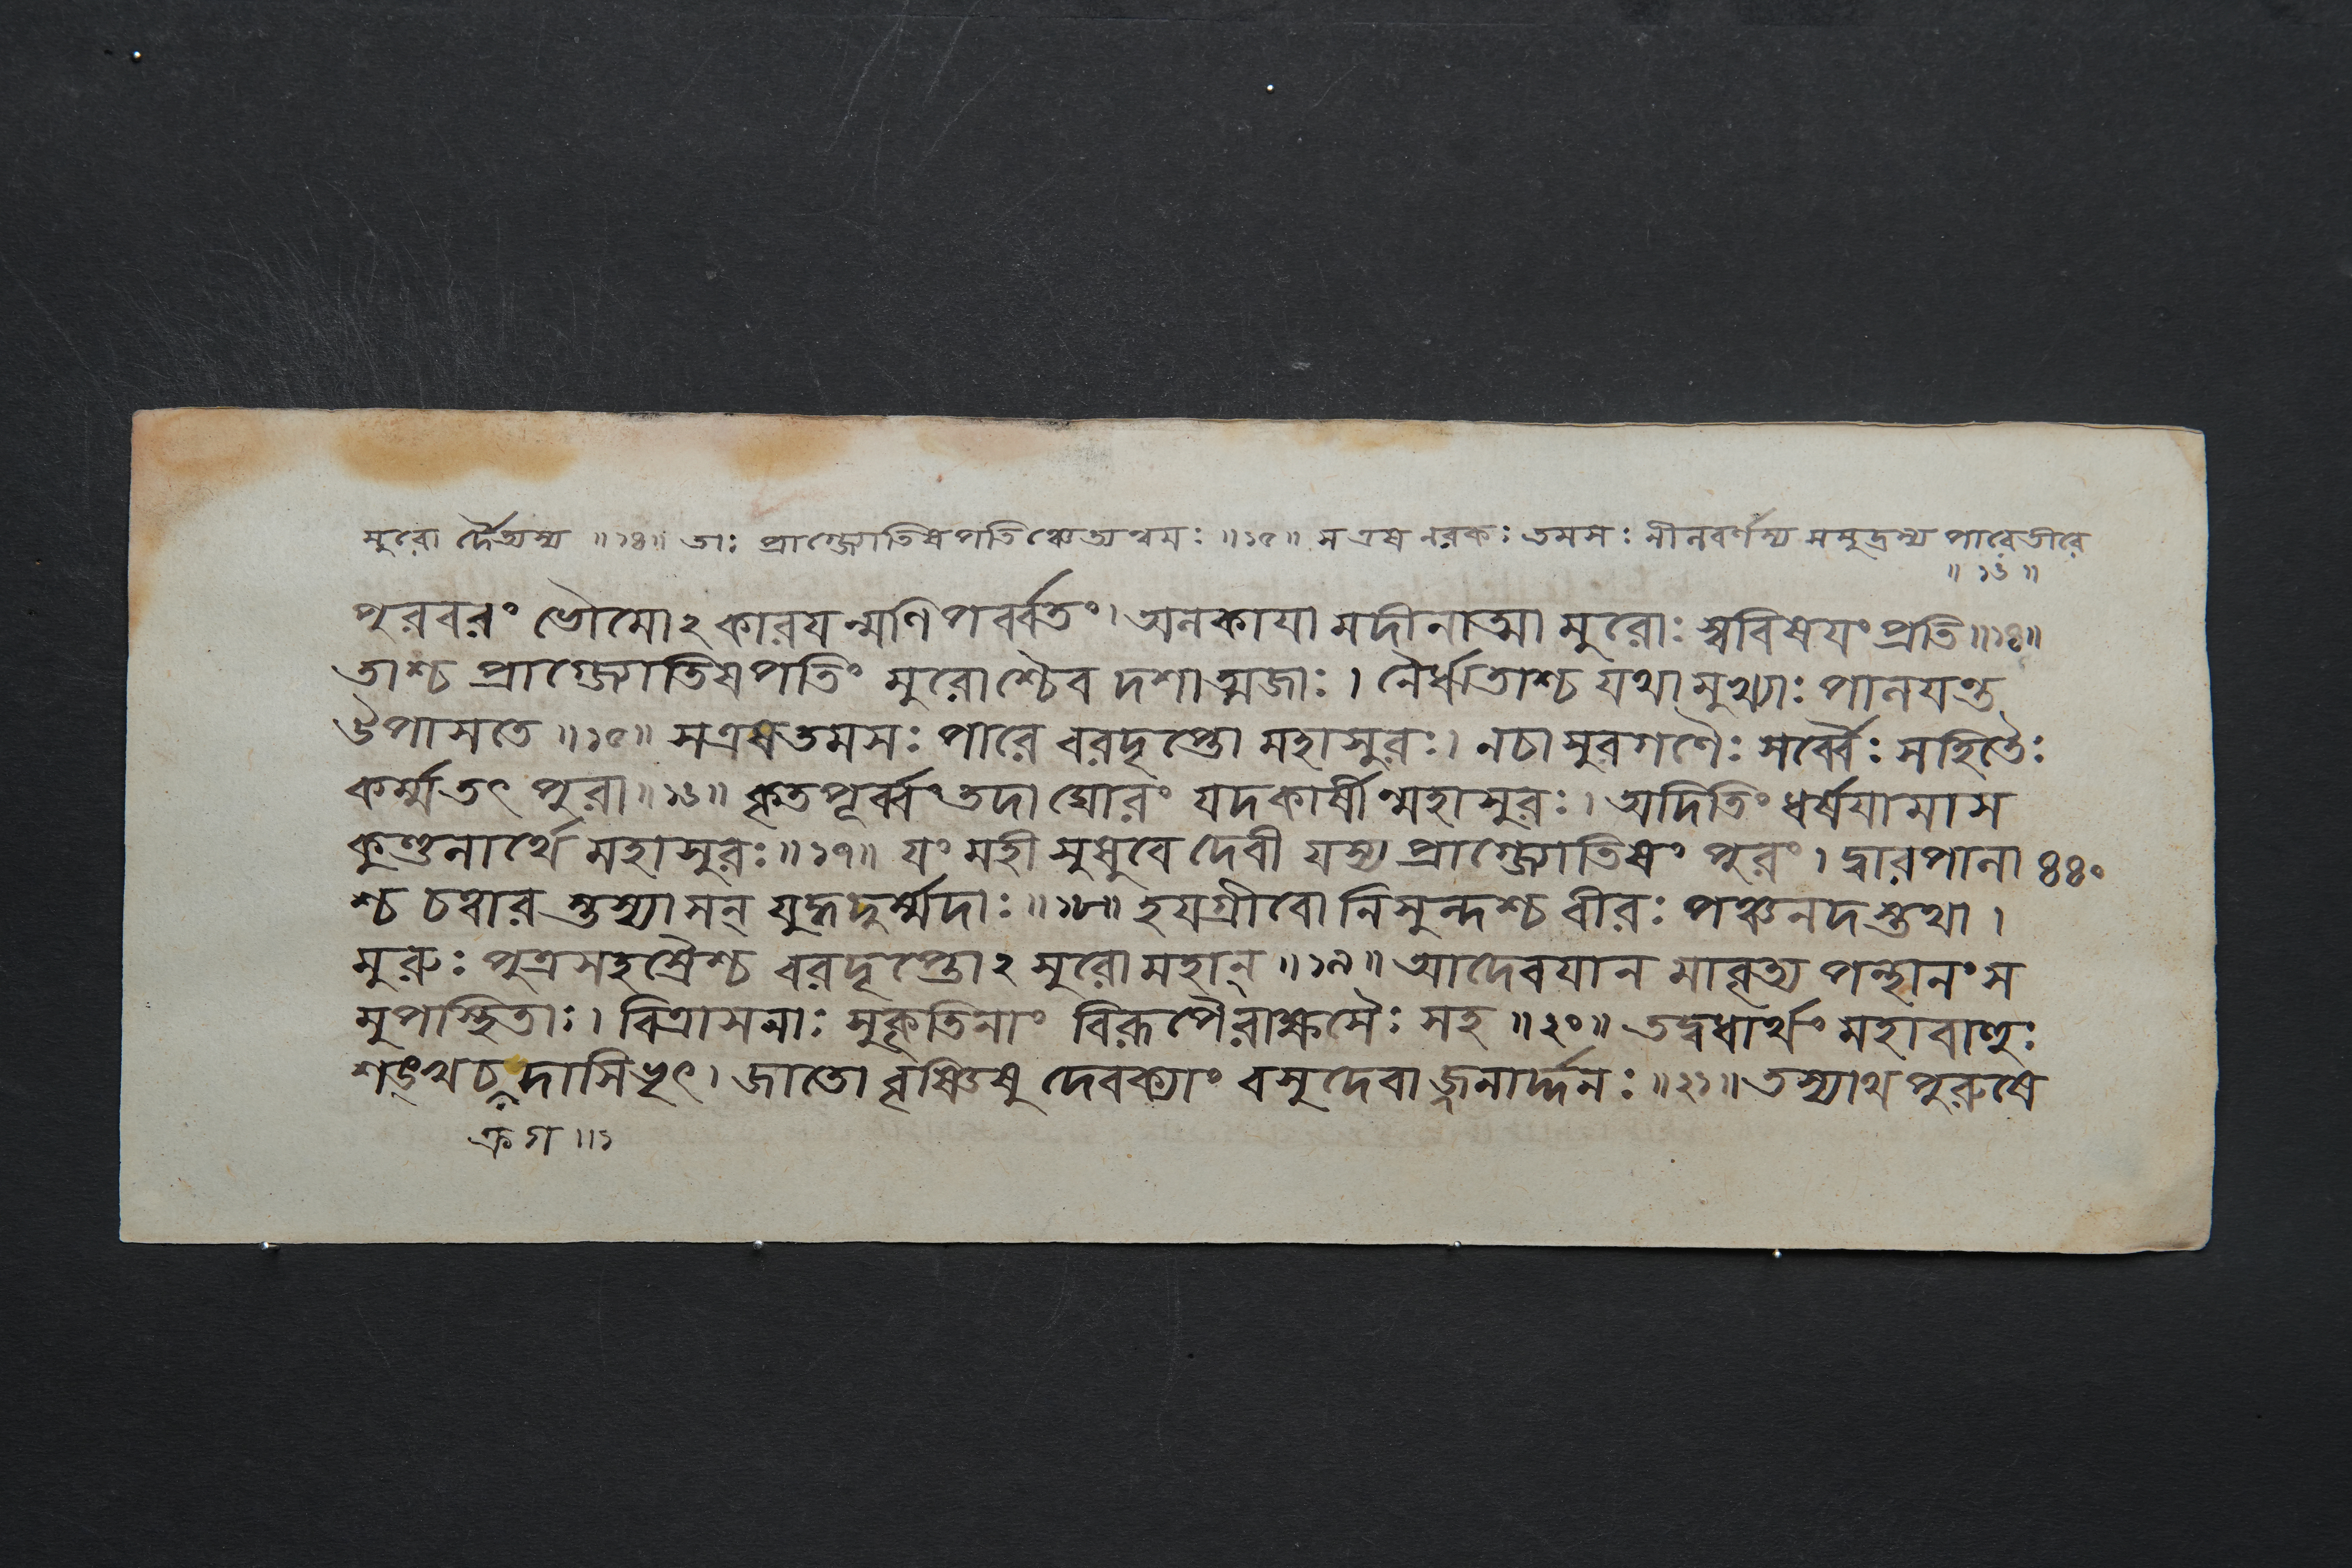 মুরো র্দৈত্যস্য ॥১৪॥ তাঃ প্রাগ্জ্যোতিষপতিঞ্চেত্যন্বয়ঃ ॥১৫॥ স এষ নরকঃ তমসঃ নীলবর্ণস্য সমুদ্রস্য পারে তীরে
॥১৬॥
পুরবরং ভৌমোঽকারযন্মণিপর্ব্বতং। অলকাযামদীনাত্মা মুরোঃ স্ববিষযং প্রতি॥১৪॥
তাশ্চ প্রাগ্জ্যোতিষপতিং মুরোশ্চৈব দশাত্মজাঃ। নৈরৃতাশ্চ যথা মুখ্যাঃ পালযন্ত
উপাসতে॥১৫॥ সএষ তমসঃ পারে বরদৃপ্তো মহাসুরঃ। নচাসুরগণৈঃ সর্ব্বৈঃ সহিতৈঃ
কর্ম্মতৎ পুরা॥১৬॥ কৃতপূর্ব্বং তদা ঘোরং যদকার্ষীন্মহাসুরঃ। অদিতিং ধর্ষযামাস
কুণ্ডলার্থে মহাসুরঃ॥১৭॥ যং মহী সুষুবে দেবী যস্য প্রাগ্জ্যোতিষং পুরং। দ্বারপালা ৪৪০
শ্চ চত্বার স্তস্যাসন্ যুদ্ধদুর্ম্মদাঃ॥১৮॥ হযগ্রীবো নিসুন্দশ্চ বীরঃ পঞ্চনদস্তথা।
মুরুঃ পুত্রসহস্রৈশ্চ বরদৃপ্তোঽসুরো মহান্॥১৯॥ আদেবযান মাবৃত্য পন্থানং স
মুপস্থিতাঃ। বিত্রাসনাঃ সুকৃতিনাং বিরূপৈরাক্ষসৈঃ সহ॥২০॥ তদ্বধার্থং মহাবাহুঃ
শঙ্খচক্রদাসিভৃৎ। জাতো বৃষ্ণিষু দেবক্যাং বসুদেবাজ্জনার্দ্দনঃ॥২১॥ তস্যাথ পুরুষে
ক্রগ॥১